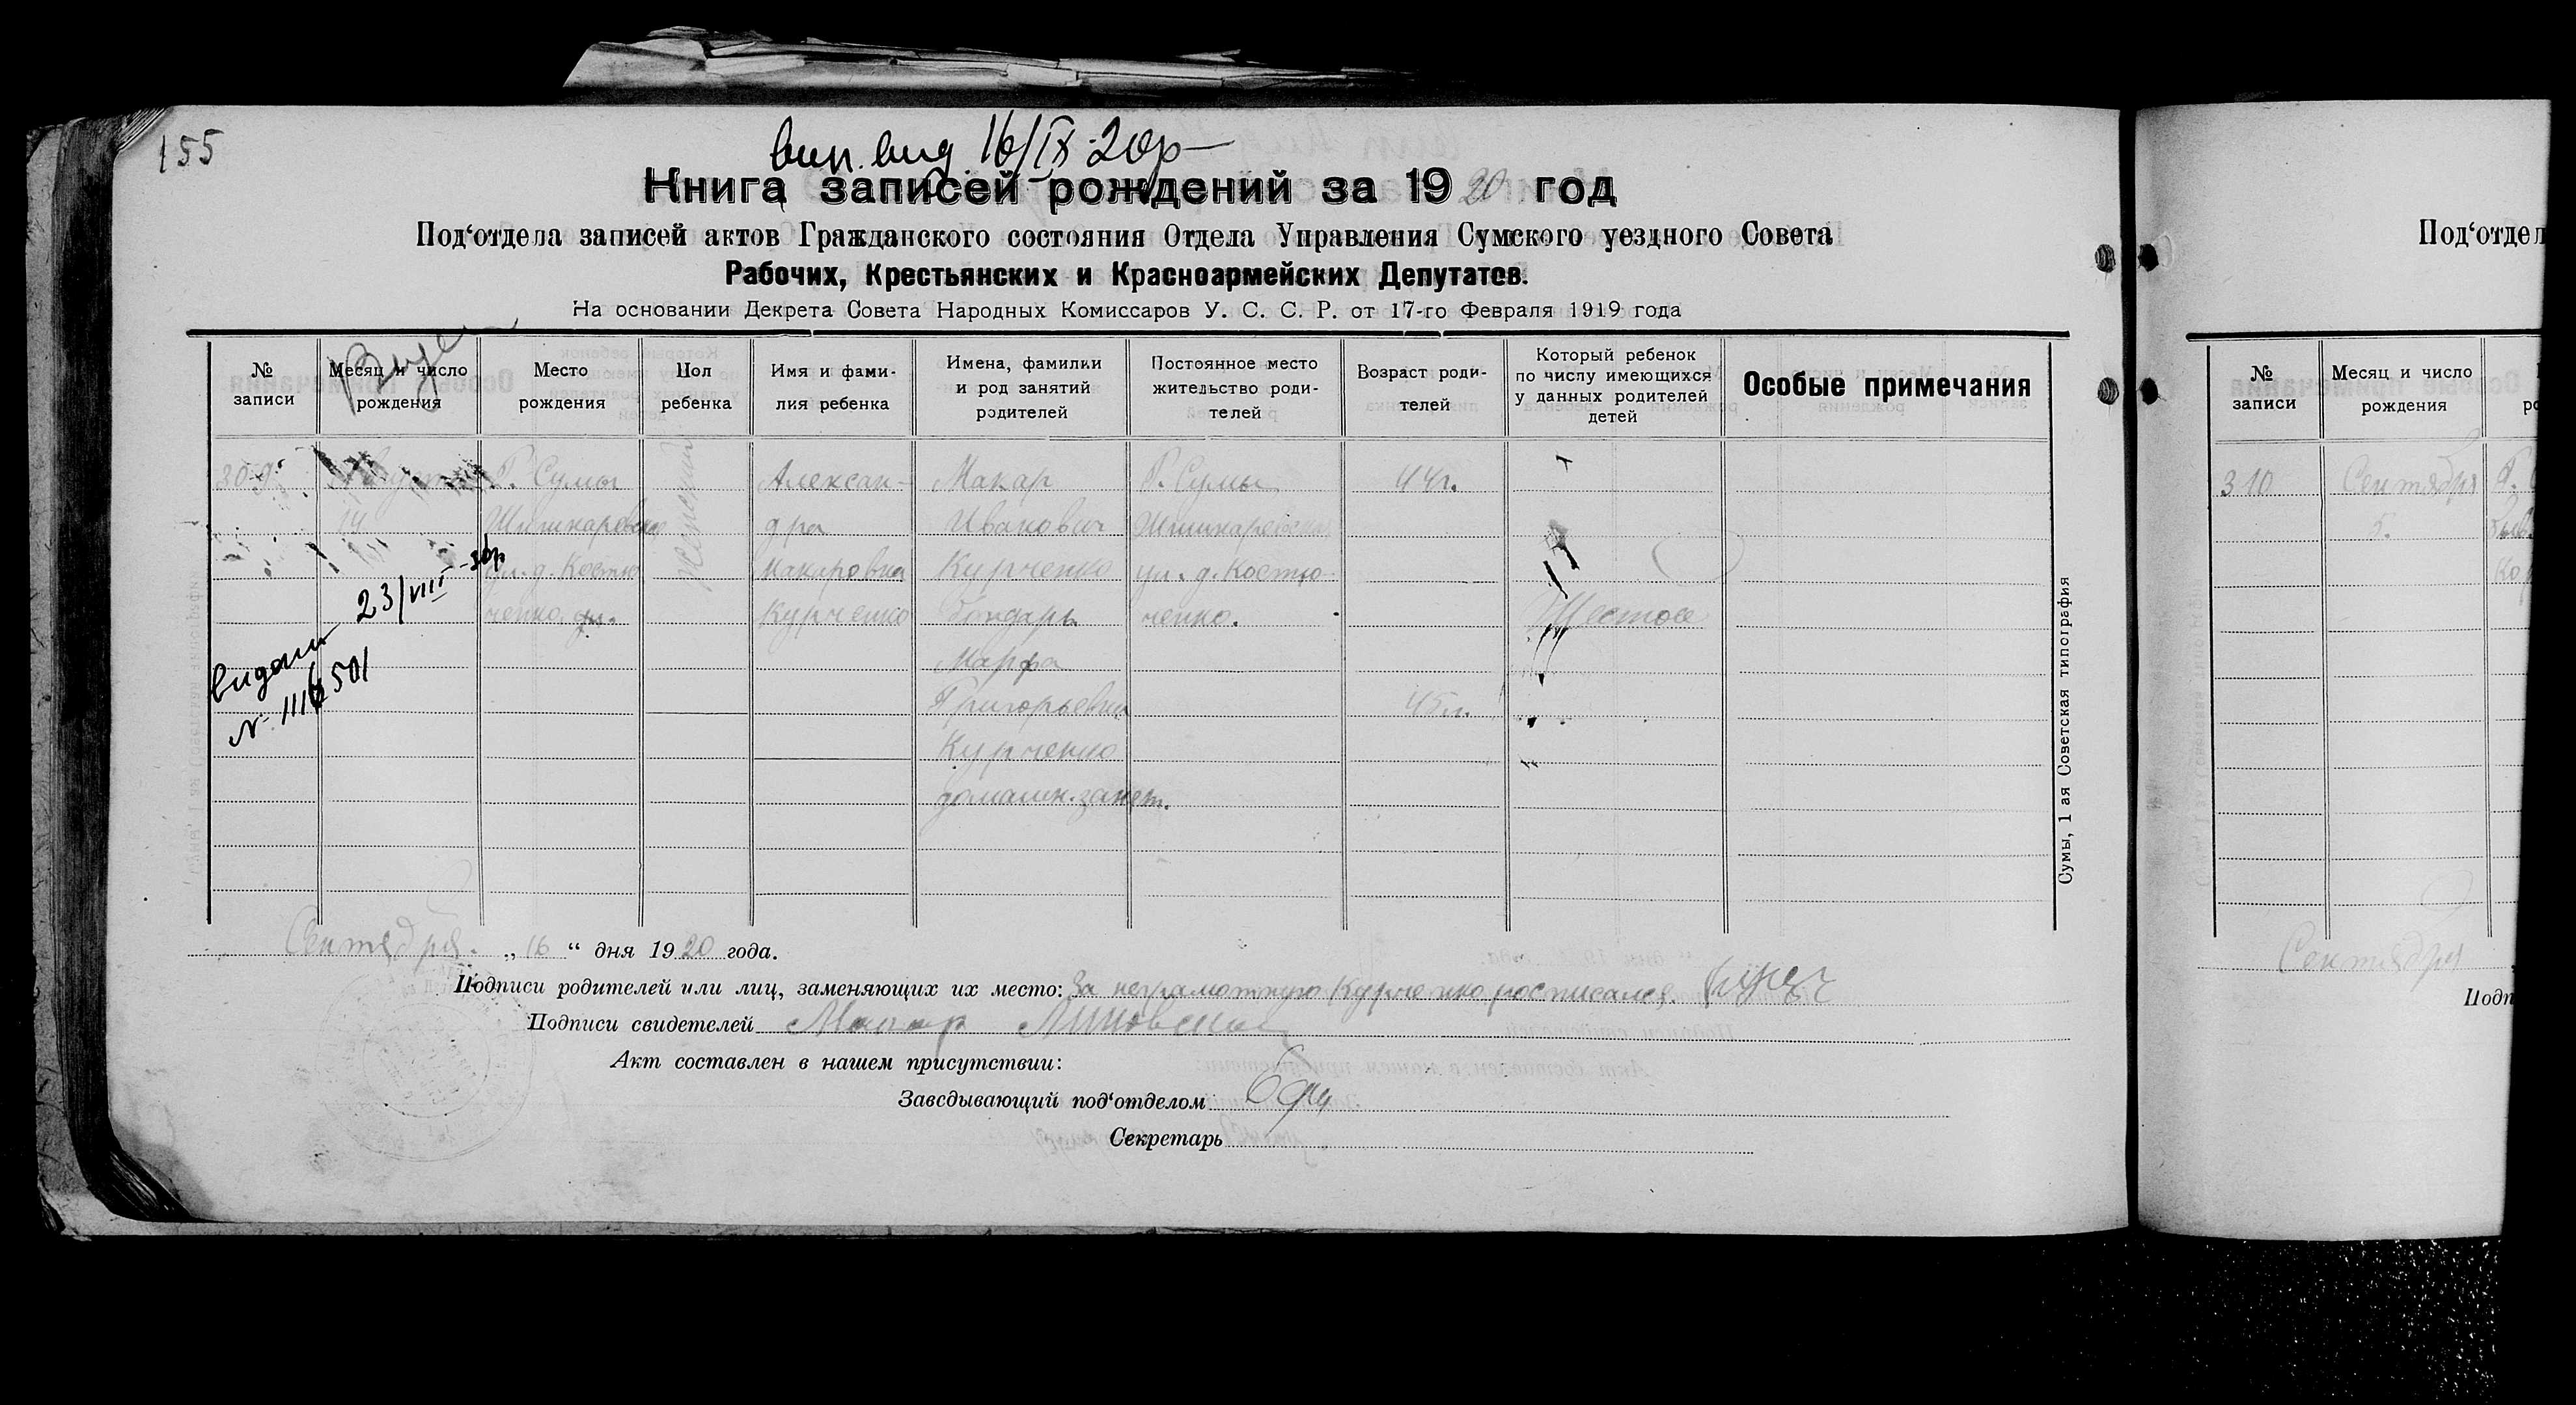 155
вип. вид. 16/IX 20р
Книга записей рождений за 1920 год
Под‘отдела записей актов Гражданского состояния Отдела Управления Сумского уездного Совета
Рабочих, Крестьянских и Красноармейских Депутатов.
На основании Декрета Совета Народных Комиссаров У. С. С. Р. от 17-го Февраля 1919 года
№ записи
Месяц и число рождения
Место рождения
Пол ребенка
Имя и фами-
лия ребенка
Имена, фамилии
и род занятий
родителей
Постоянное место
жительство роди-
телей
Возраст роди-
телей
Который ребенок
по числу имеющихся
у данных родителей
детей
Особые примечания
309
14
Г. Сумы
ул. д. Костю
ченко
женский
Алексан-
дра
Макаровна
Курченко
Макар
Иванович
Курченко
бондарь
Марфа
Григорьевна
Курченко
домашн. занят.
Г. Сумы
ул. д. Костю-
ченко.
44г.
45л.
Шестое
23/VIII-20р
видани
Сумы, 1 ая Советская типография
Сентября. „16“ дня 1920 года.
Подписи родителей или лиц, заменяющих их место: За неграмотную Курченко росписался
Подписи свидетелей Макар
Акт составлен в нашем присутствии:
Заведывающий под‘отделом
Секретарь
Под‘отдел
№ записи
Месяц и число рождения
310
Сентября
5.
Г.
Сентября
Подп